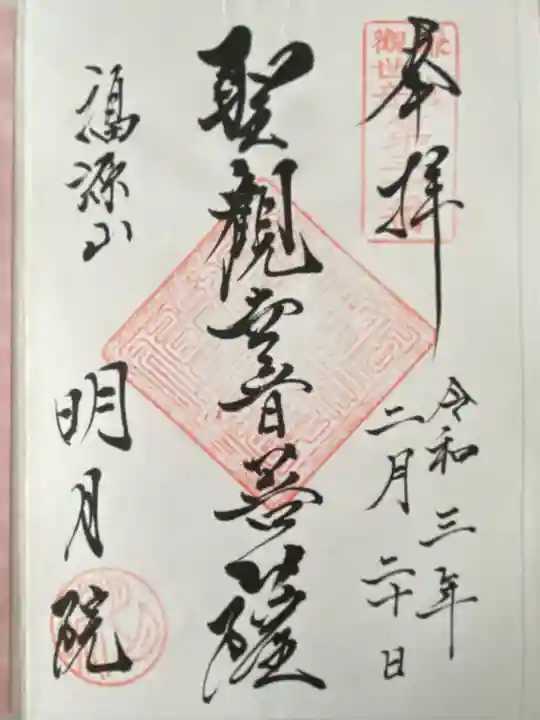 奉拝
令和三年
二月二十日
聖観音菩薩
福源山
明月院